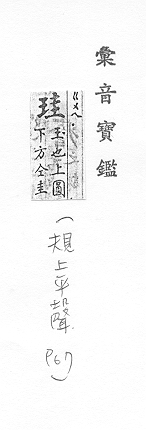 彙音寶鑑
ㄍㄨㄟ
珪 玉也上圓
下方仝圭
(規上平聲 P67)